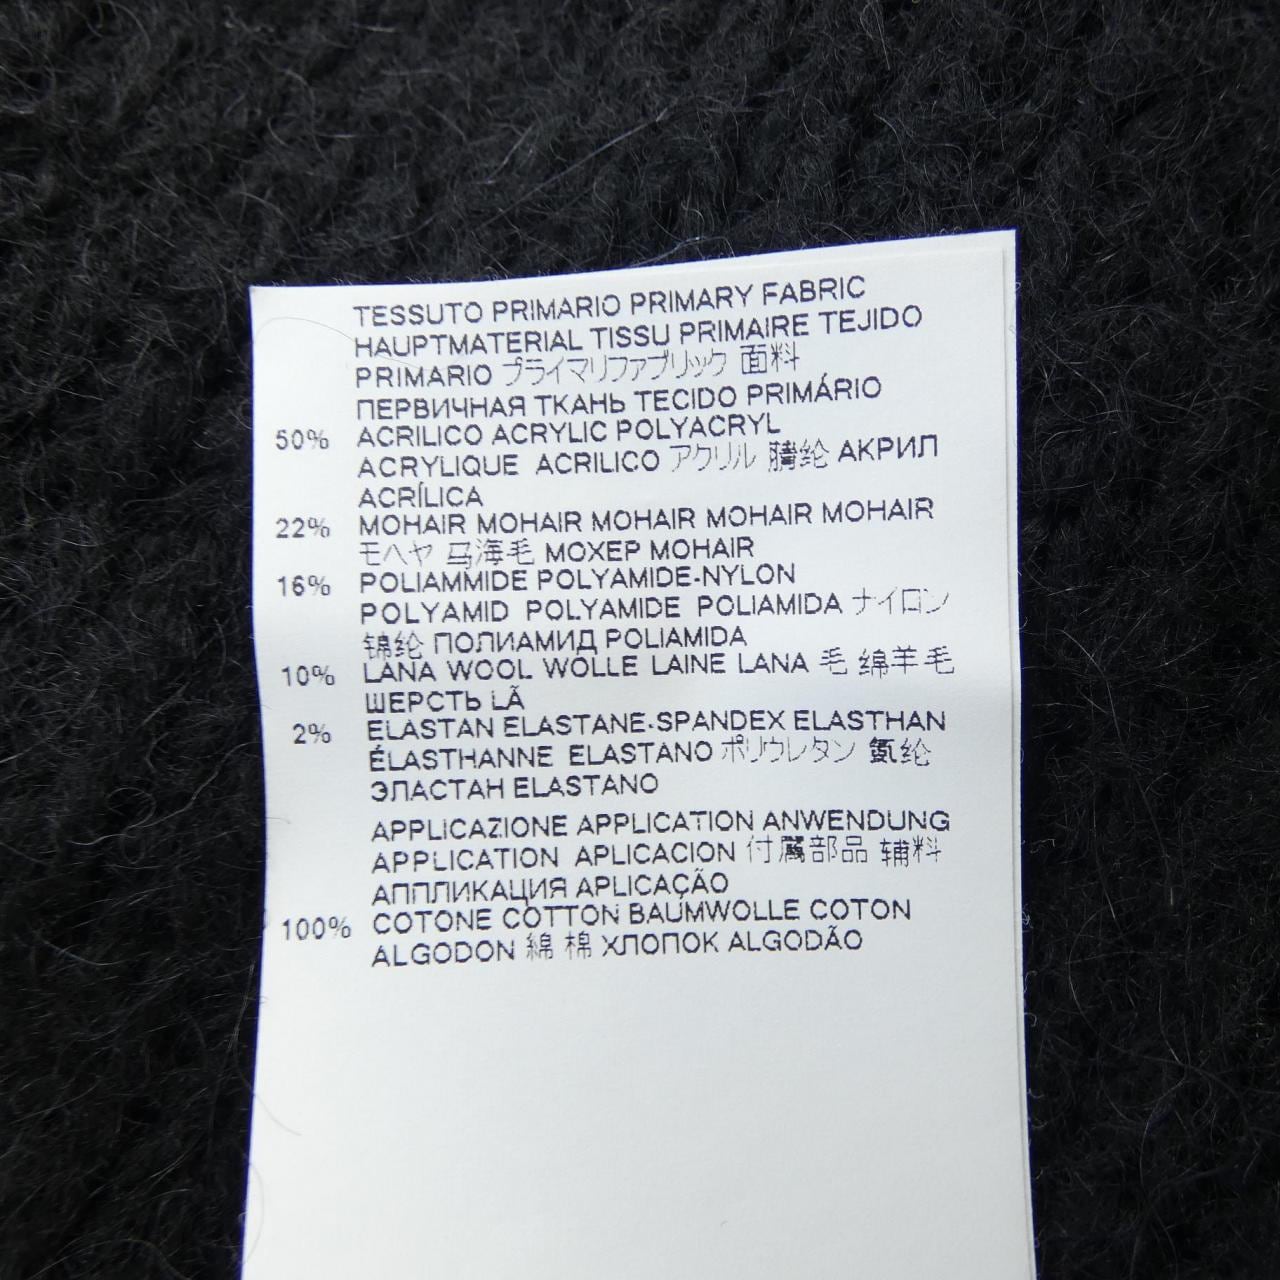 TESSUTO PRIMARIO PRIMARY FABRIC
HAUPTMATERIAL TISSU PRIMAIRE TEJIDO
PRIMARIO プライマリファブリック 面料
ПЕРВИЧНАЯ ТКАНЬ TECIDO PRIMÁRIO
50% ACRILICO ACRYLIC POLYACRYL
ACRYLIQUE ACRILICO アクリル 腈纶 АКРИЛ
ACRÍLICA
22% MOHAIR MOHAIR MOHAIR MOHAIR MOHAIR
モヘヤ 马海毛 МОХЕР MOHAIR
16% POLIAMMIDE POLYAMIDE-NYLON
POLYAMID POLYAMIDE POLIAMIDA ナイロン
锦纶 ПОЛИАМИД POLIAMIDA
10% LANA WOOL WOLLE LAINE LANA 毛 绵羊毛
ШЕРСТЬ LÃ
2% ELASTAN ELASTANE-SPANDEX ELASTHAN
ÉLASTHANNE ELASTANO ポリウレタン 氨纶
ЭЛАСТАН ELASTANO
APPLICAZIONE APPLICATION ANWENDUNG
APPLICATION APLICACION 付属部品 辅料
АППЛИКАЦИЯ APLICAÇÃO
100% COTONE COTTON BAUMWOLLE COTON
ALGODON 綿 棉 ХЛОПОК ALGODÃO